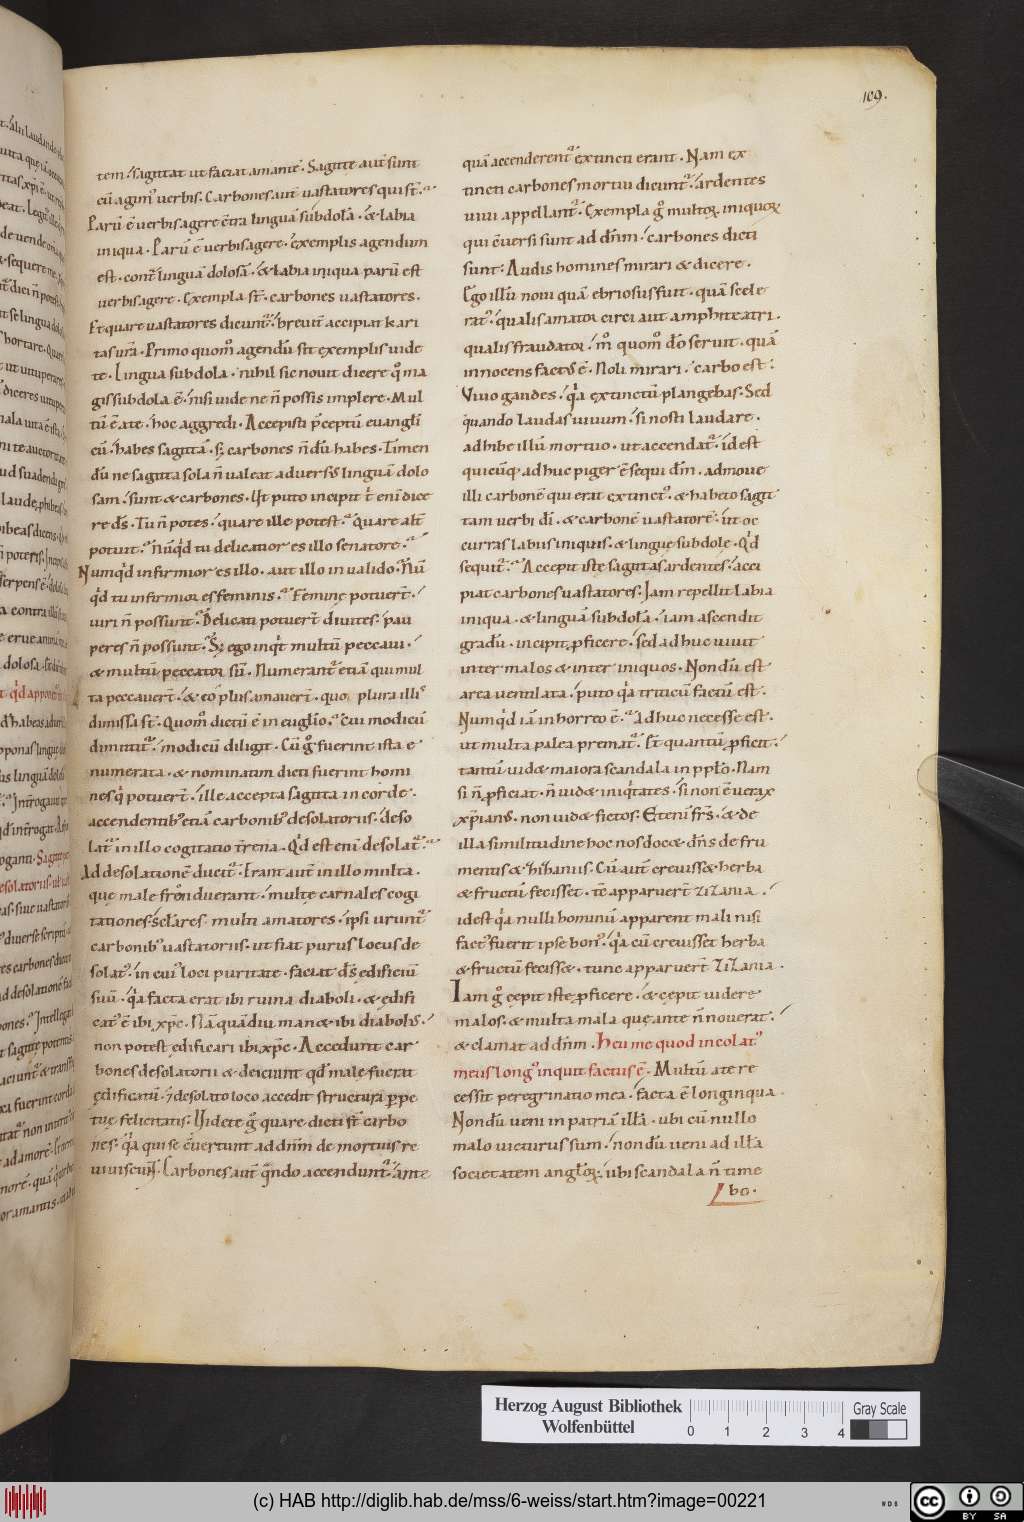 109.
tem. sagittat ut faciat amantē. Sagitte aut̄ sunt
cū agim' uerbis. Carbones aut̄ uastatores qui st̄.
Parū ē uerbis agere c̄tra linguā subdolā. & labia
iniqua. Parū ē uerbis agere. exemplis agendum
est. cont̄ linguā dolosā. & labia iniqua parū est
uerbis agere. Exempla st̄. carbones uastatores.
Et quare uastatores dicunt̄. breuit̄ accipiat kari
tas ur̄a. Primo quom̄ agendū sit exemplis uide
te. Lingua subdola. nihil sic nouit dicere q̊ ma
gis subdola ē. nisi uide ne n̄ possis implere. Mul
tū ē a te. hoc aggredi. Accepisti p̄ceptū euangl̄i
cū. habes sagittā. s; carbones n̄dū habes. Timen
dū ne sagitta sola n̄ ualeat aduersus linguā dolo
sam. sunt & carbones. Ut puto incipit t̄ enī dice
re d̄s. Tu n̄ potes. quare ille potest. Quare alt̄
potuit. nūq̄d tu delicatior es illo senatore.
Numq̄d infirmior es illo. aut illo inualido. Nū
q̄d tu infirmior es feminis. Feminę potuert̄.
uiri n̄ possunt. Delicati potuert̄ diuites. pau
peres n̄ possunt. S; ego inq̄t multū peccaui.
& multū peccator sū. Numerant̄ etiā qui mul
ta peccauert̄. & eo plus amauert̄. quo plura illis
dimissa st̄. Quom̄ dictū ē in euglīo. Cui modicū
dimittit̄. modicū diligit. Cū ḡ fuerint ista e
numerata. & nominatim dicti fuerint homi
nes q̄ potuert̄. ille accepta sagitta in corde.
accendentib' etiā carbonib' desolatoriis. deso
lat̄ in illo cogitatio t̄rena. Q̄d est enī desolat̄.
Ad desolationē ducit̄. Erant aut̄ in illo multa.
quę male fronduerant. multę carnales cogi
tationes. sc̄lares. multi amatores. ipsi urunt̄
carbonib' uastatoriis. ut fiat purus locus de
solat'. in cui' loci puritate. faciat d̄s ędificiū
suū. q̄a facta erat ibi ruina diaboli. & ędifi
cat' ē ibi xp̄c. Nā quādiu man& ibi diabolus.
non potest ędificari ibi xp̄c. Accedunt car
bones desolatorii & deiciunt qd̄ male fuerat
ędificatū. & desolato loco accedit structura ppe
tuę felicitatis. Uidete ḡ quare dicti st̄ carbo
nes. q̄a qui se c̄uertunt ad dn̄m de mortuis re
uiuiscunt. Carbones aut̄ q̄ndo accendunt̄. ante
quā accenderent̄ extincti erant. Nam ex
tincti carbones mortui dicunt̄. ardentes
uiui appellant̄. Exempla ḡ multoꝝ iniquoꝝ
qui c̄uersi sunt ad dn̄m. carbones dicti
sunt. Audis homines mirari & dicere.
Ego illū noui quā ebriosus fuit. quā scele
rat'. qualis amator circi aut amphiteatri.
qualis fraudator. m̊ quom̊ dō seruit. quā
innocens factus ē. Noli mirari. carbo est.
Viuo gaudes. q̄a extinctū plangebas. Sed
quando laudas uiuum. si nosti laudare.
adhibe illū mortuo. ut accendat̄. id est
quicūq; adhuc piger ē sequi dm̄. admoue
illi carbonē qui erat extinct'. & habeto sagit
tam uerbi dī. & carbonē uastatorē. ut oc
curras labiis iniquis. & linguę subdolę. Q̄d
sequit̄. Accepit iste sagittas ardentes. acci
piat carbones uastatores. Iam repellit labia
iniqua. & linguā subdolā. iam ascendit
gradū. incipit pficere. sed adhuc uiuit
inter malos & inter iniquos. Nondū est
area uentilata. puto q̄a triticū factū est.
Numq̄d iā in horreo ē. Adhuc necesse est.
ut multa palea premat̄. Et quantū pficit.
tantū uid& maiora scandala in pplo. Nam
si n̄ pficiat. n̄ uid& iniq̄tates. si non ē uerax
xp̄ianus. non uid& fictos. Etenī fr̄s. & de
illa similitudine hoc nos doc& dn̄s de fru
mentis & zizaniis. Cū aut̄ creuiss& herba
& fructū fecisset. tc̄ apparuert̄ zizania.
id est q̄a nulli hominū apparent mali nisi
fact' fuerit ipse bon'. q̄a cū creuisset herba
& fructū feciss&. tunc apparuert̄ zizania.
Iam ḡ cępit iste pficere. & cępit uidere
malos. & multa mala quę ante n̄ nouerat.
& clamat ad dn̄m. Heu me quod incolat'
meus long' inquit factus ē. Multū a te re
cessit peregrinatio mea. facta ē longinqua
Nondū ueni in patriā illā. ubi cū nullo
malo uicturus sum. nondū ueni ad illā
societatem angl̄oꝝ. ubi scandala n̄ time
bo.
Herzog August Bibliothek
Wolfenbüttel
0 1 2 3 4
Gray Scale
(c) HAB http://diglib.hab.de/mss/6-weiss/start.htm?image=00221
cc BY SA